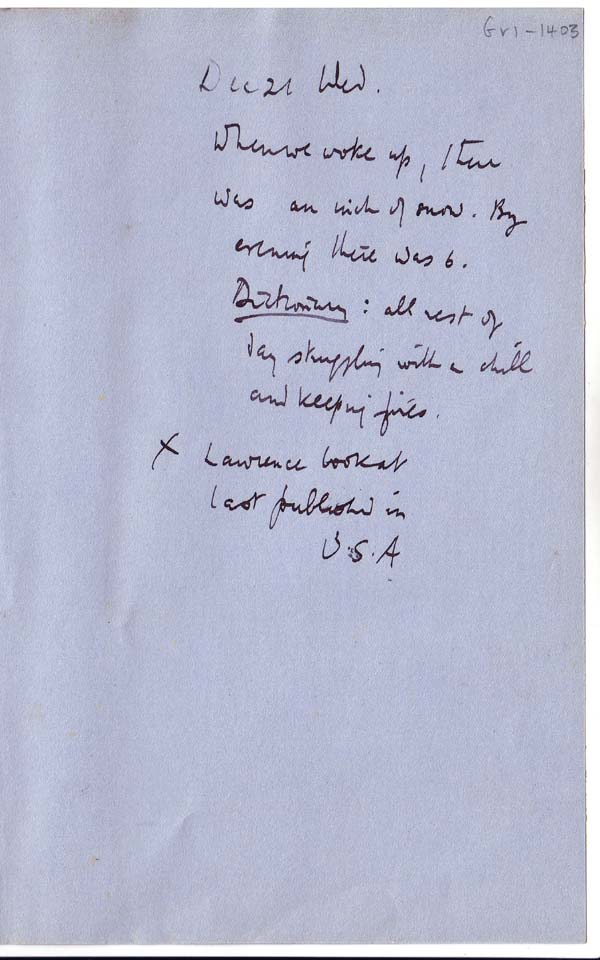 Gv1-1403
Dec 21 Wed.
When we woke up, there
was an inch of snow. By
evening there was 6.
Dictionary: all rest of
day struggling with a chill
and keeping fires.
X Lawrence book at
last published in
U.S.A